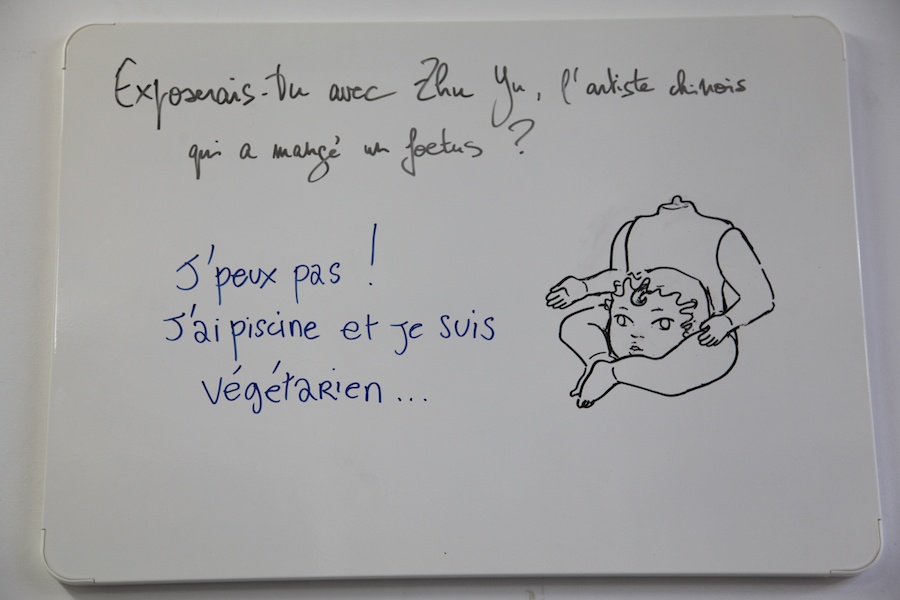 Exposerais-tu avec Zhu Yu, l'artiste chinois
qui a mangé un foetus ?
J'peux pas !
J'ai piscine et je suis
végétarien...